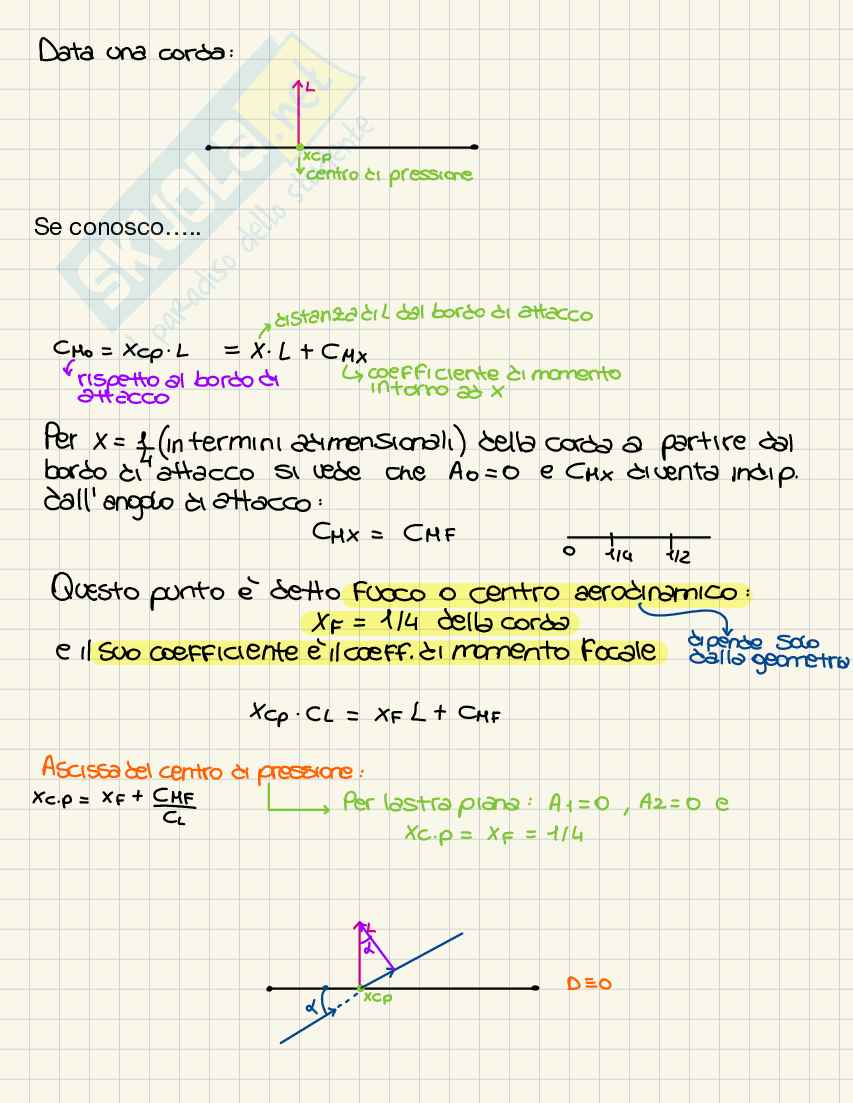 Data una corda:
L
xcp
centro di pressione
SKUOLA.net
il paradiso dello studente
Se conosco.....
distanza di L dal bordo di attacco
CMo = xcp · L = x · L + CMX
rispetto al bordo di attacco
coefficiente di momento
intorno ad x
Per x = 1/4 (in termini adimensionali) della corda a partire dal
bordo di attacco si vede che Ao=0 e CMX diventa indip.
dall'angolo di attacco:
CMX = CMF
0 1/4 1/2
Questo punto è detto fuoco o centro aerodinamico:
xF = 1/4 della corda
e il suo coefficiente è il coeff. di momento focale
dipende solo
dalla geometra
xcp · CL = xF L + CMF
Ascissa del centro di pressione:
xc.p = xF + CMF/CL
Per lastra piana: A1=0, A2=0 e
xc.p = xF = 1/4
L
α
xcp
α
D≡0